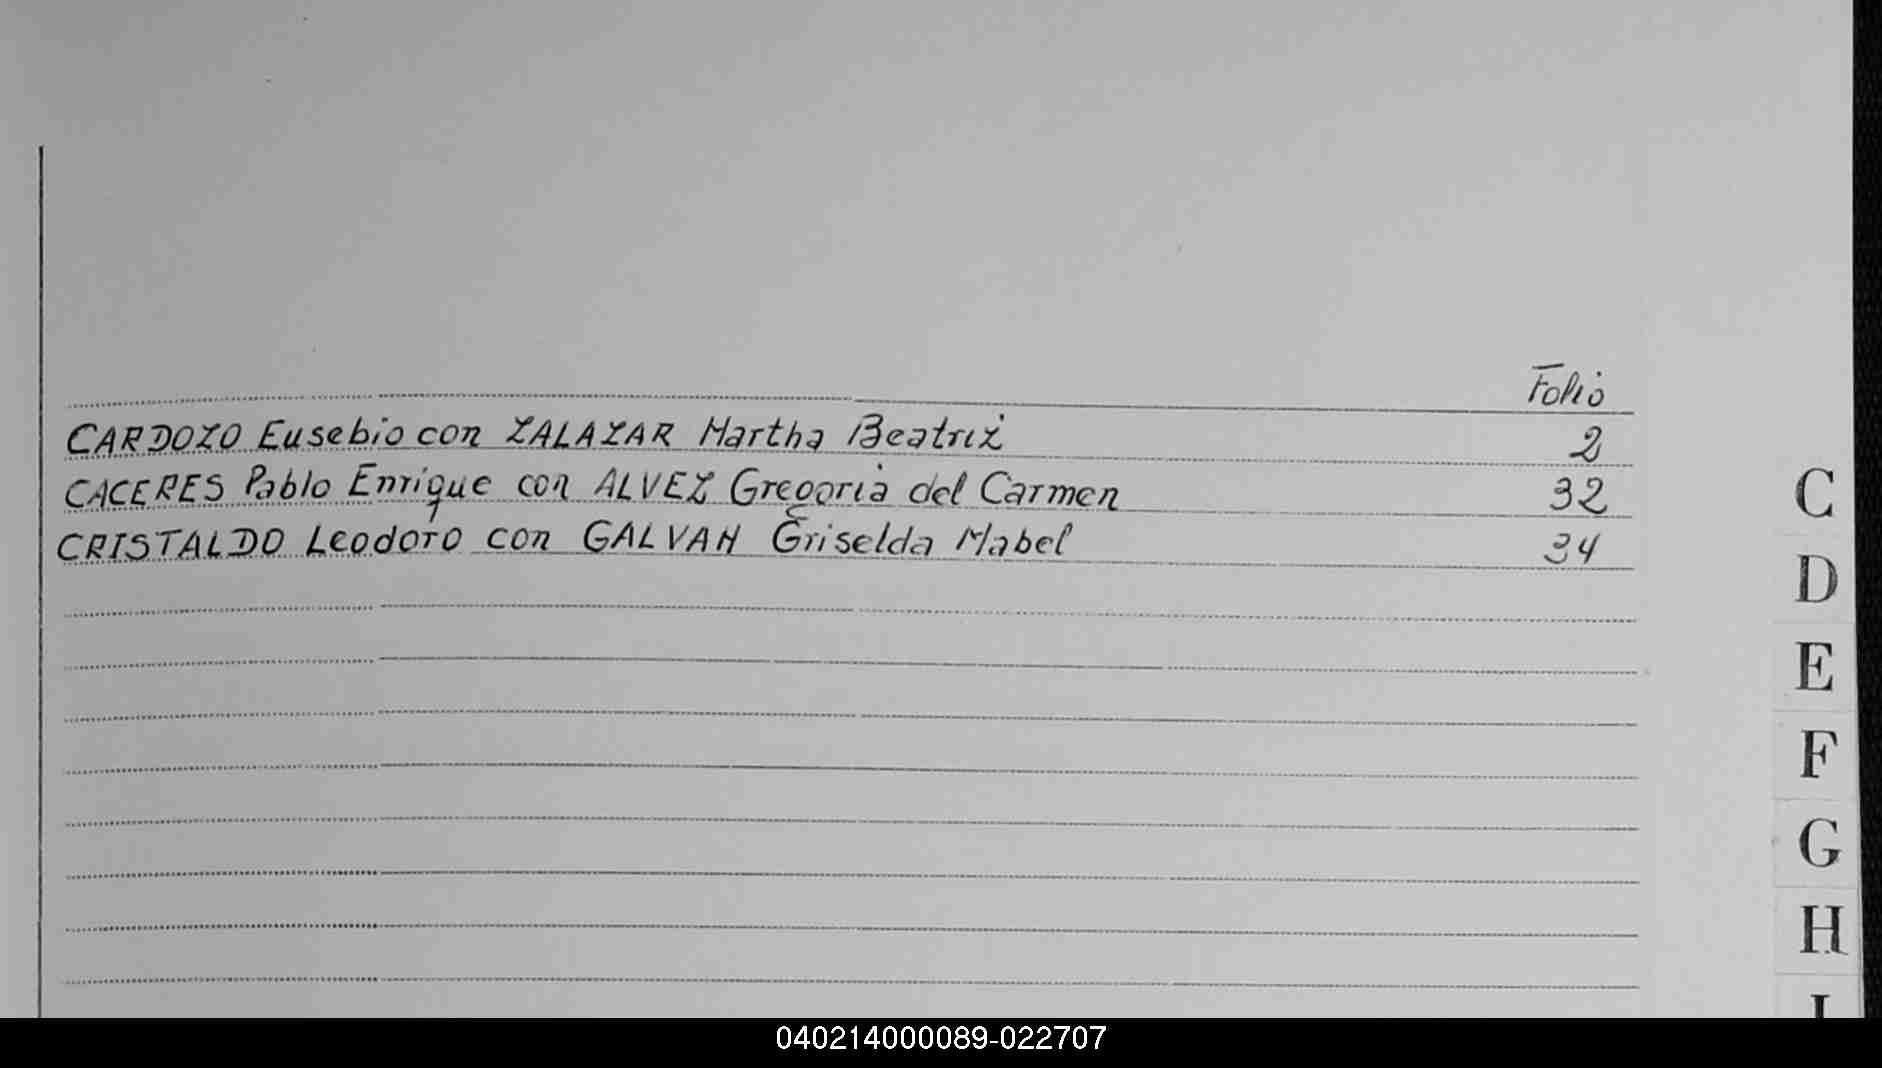 Folio
CARDOZO Eusebio con ZALAZAR Martha Beatriz 2
CACERES Pablo Enrique con ALVEZ Gregoria del Carmen 32
CRISTALDO Leodoro con GALVAN Griselda Mabel 34
C
D
E
F
G
H
I
040214000089-022707